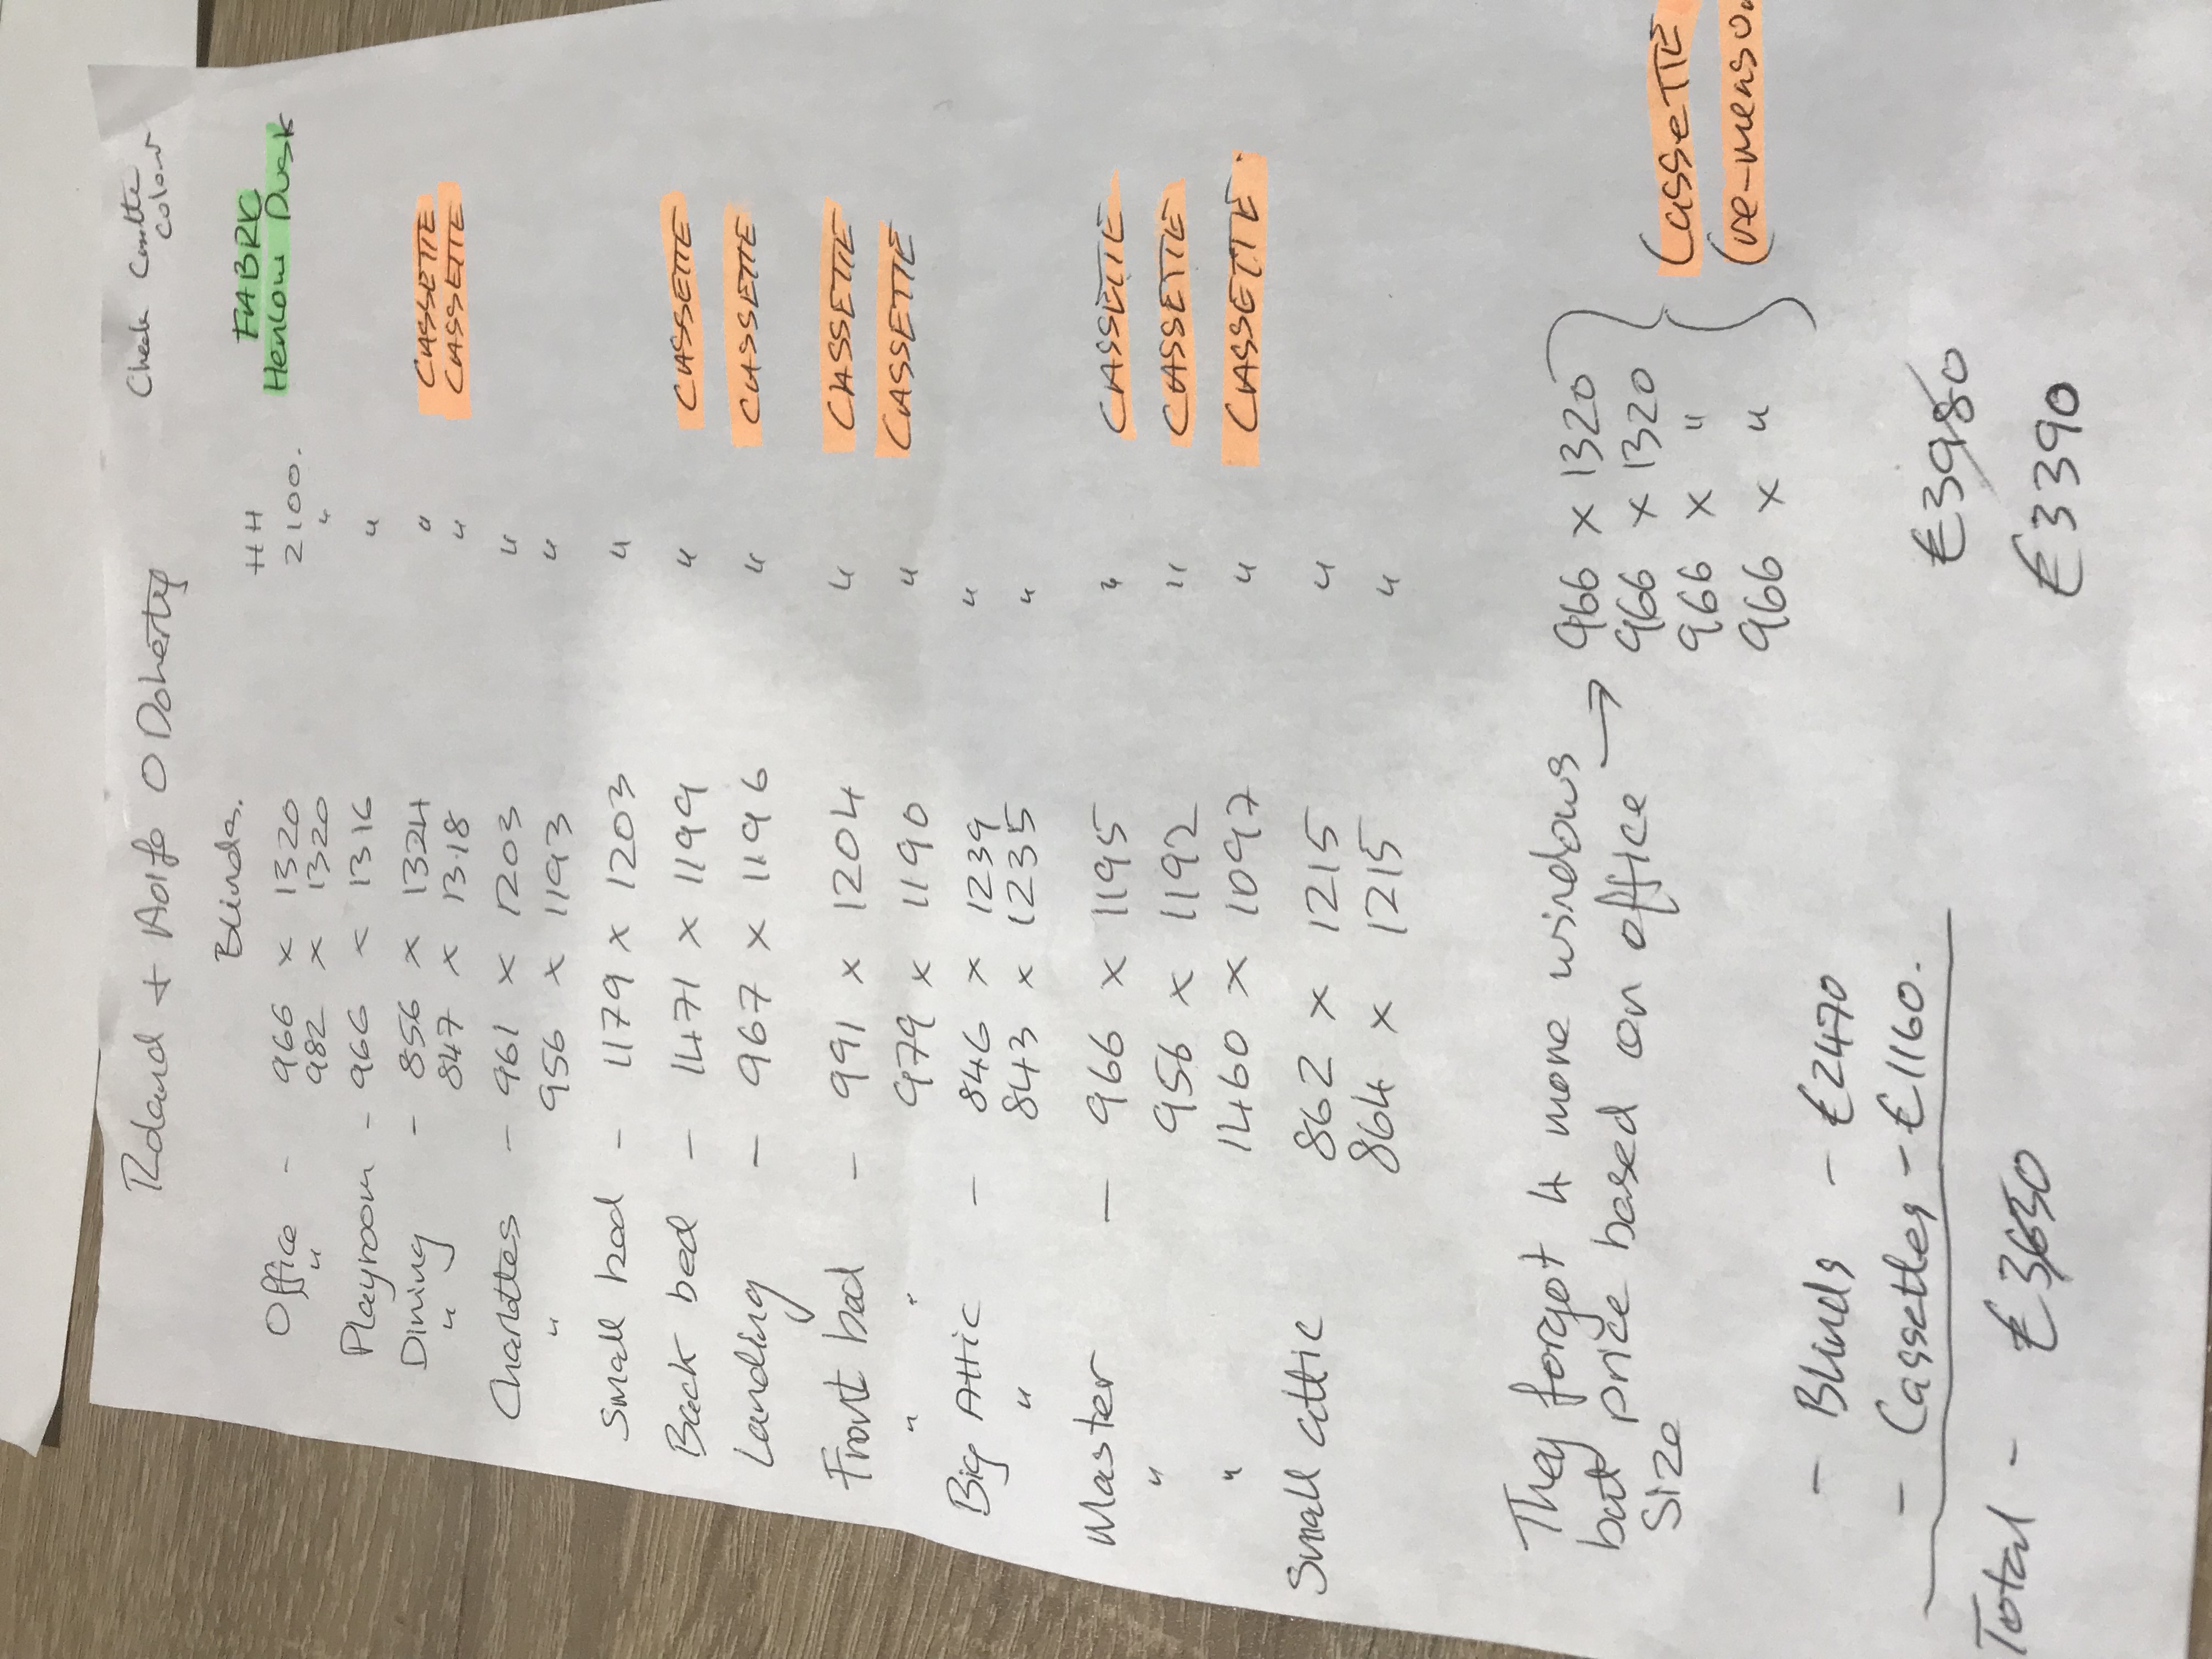 Roland + Aoife O Doherty Check Cassette colour
Blinds. HH FABRIC
Office - 966 x 1320 2100. Henlow Dusk
" 982 x 1320 "
Playroom - 966 x 1316 "
Dining - 856 x 1324 " CASSETTE
" 847 x 1318 " CASSETTE
Charlottes - 961 x 1203 "
" 956 x 1193 "
Small bed - 1179 x 1203 "
Back bed - 1471 x 1199 " CASSETTE
Landing - 967 x 1196 " CASSETTE
Front bed - 991 x 1204 " CASSETTE
" 979 x 1190 " CASSETTE
Big Attic - 846 x 1239 "
" 843 x 1235 "
Master - 966 x 1195 " CASSETTE
" 956 x 1192 " CASSETTE
" 1460 x 1097 " CASSETTE
Small attic 862 x 1215 "
864 x 1215 "
They forgot 4 more windows → 966 x 1320
but price based on office 966 x 1320 CASSETTE
Size 966 x " (re-measure
966 x "
- Blinds - €2470
- Cassettes - €1160. €3980
Total - €3630 €3390